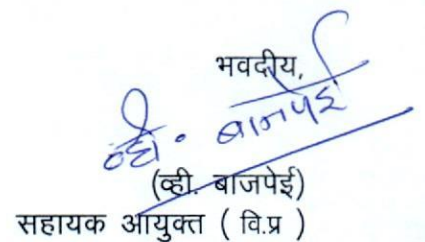 भवदीय,
व्ही. बाजपेई
(व्ही. बाजपेई)
सहायक आयुक्त ( वि.प्र )